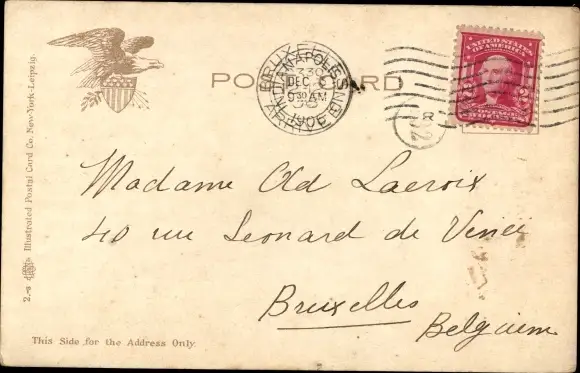 POST CARD
UNITED STATES
OF AMERICA
BRUXELLES
ARRIVEE
INDIANAPOLIS IND
DEC 6
9 30 AM
1905
R
Madame Ad Lacroix
40 rue Leonard de Vinci
Bruxelles
Belgium
This Side for the Address Only.
2.-9 Illustrated Postal Card Co. New-York-Leipzig.